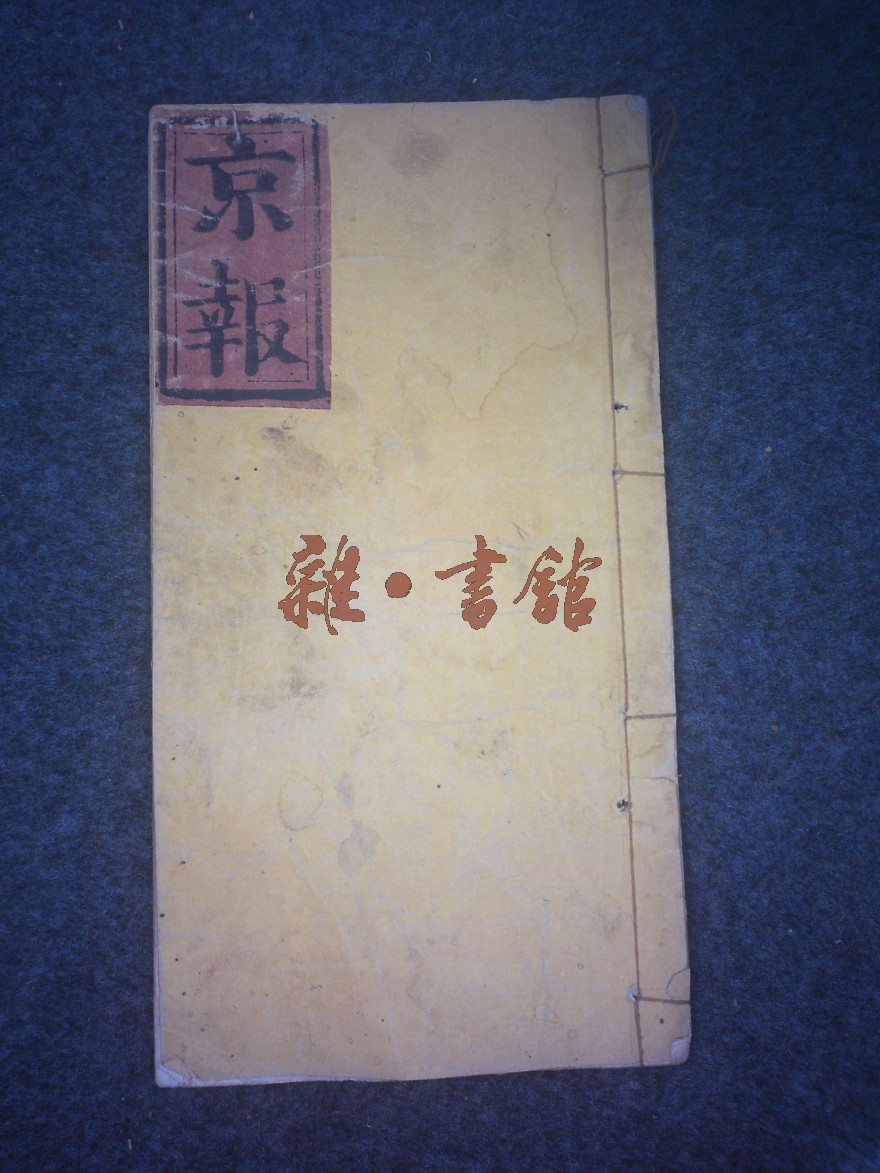 京報
雜·書館